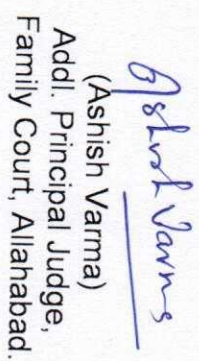 Ashish Varma
(Ashish Varma)
Addl. Principal Judge,
Family Court, Allahabad.